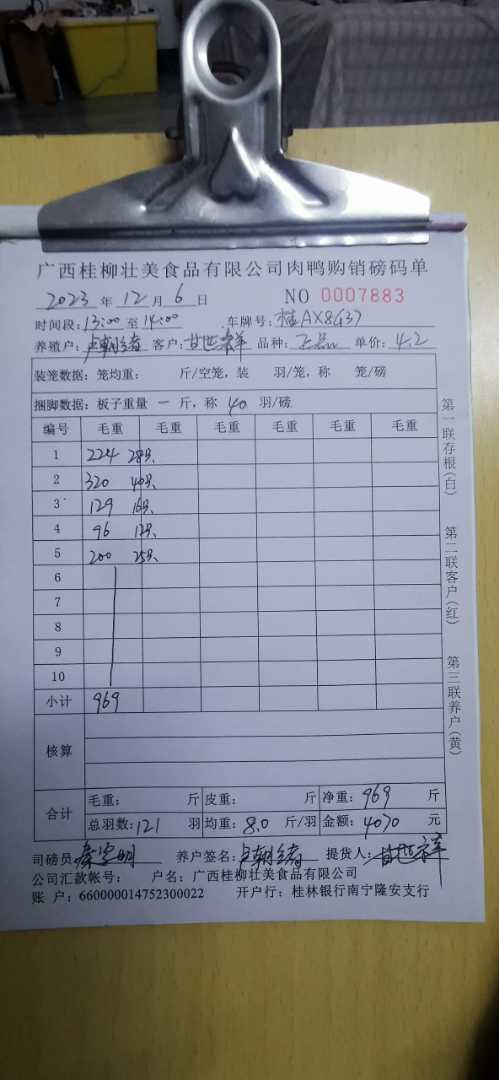 广西桂柳壮美食品有限公司肉鸭购销磅码单
2023 年 12 月 6 日 NO 0007883
时间段: 13:00 至 14:00 车牌号: 桂AX8G37
养殖户: 卢朝绪 客户: 甘世祥 品种: 单价: 4.2
装笼数据: 笼均重: 斤/空笼,装 羽/笼,称 笼/磅
捆脚数据: 板子重量 一 斤,称 40 羽/磅
编号 毛重 毛重 毛重 毛重 毛重 毛重
1 224 28只
2 320 40只
3 129 16只
4 96 12只
5 200 25只
6
7
8
9
10
小计 969
核算
合计 毛重: 斤 皮重: 斤 净重: 969 斤
总羽数: 121 羽 均重: 8.0 斤/羽 金额: 4070 元
司磅员: 养户签名: 卢朝绪 提货人: 甘世祥
公司汇款帐号: 户名: 广西桂柳壮美食品有限公司
账 户: 660000014752300022 开户行: 桂林银行南宁隆安支行
第一联存根(白)
第二联客户(红)
第三联养户(黄)